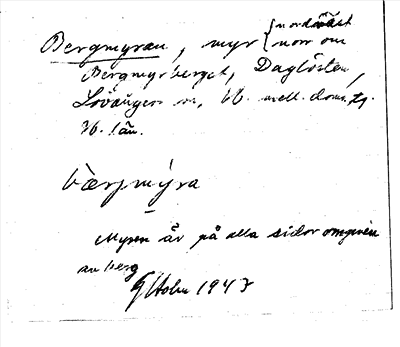 nordväst
Bergmyran, myr { norr om
Bergmyrberget, Daglösten,
Lövångers sn, Vb. mell. doms. tg.
Vb. län.
bærjmýra
Myren är på alla sidor omgiven
av berg
G Holm 1947